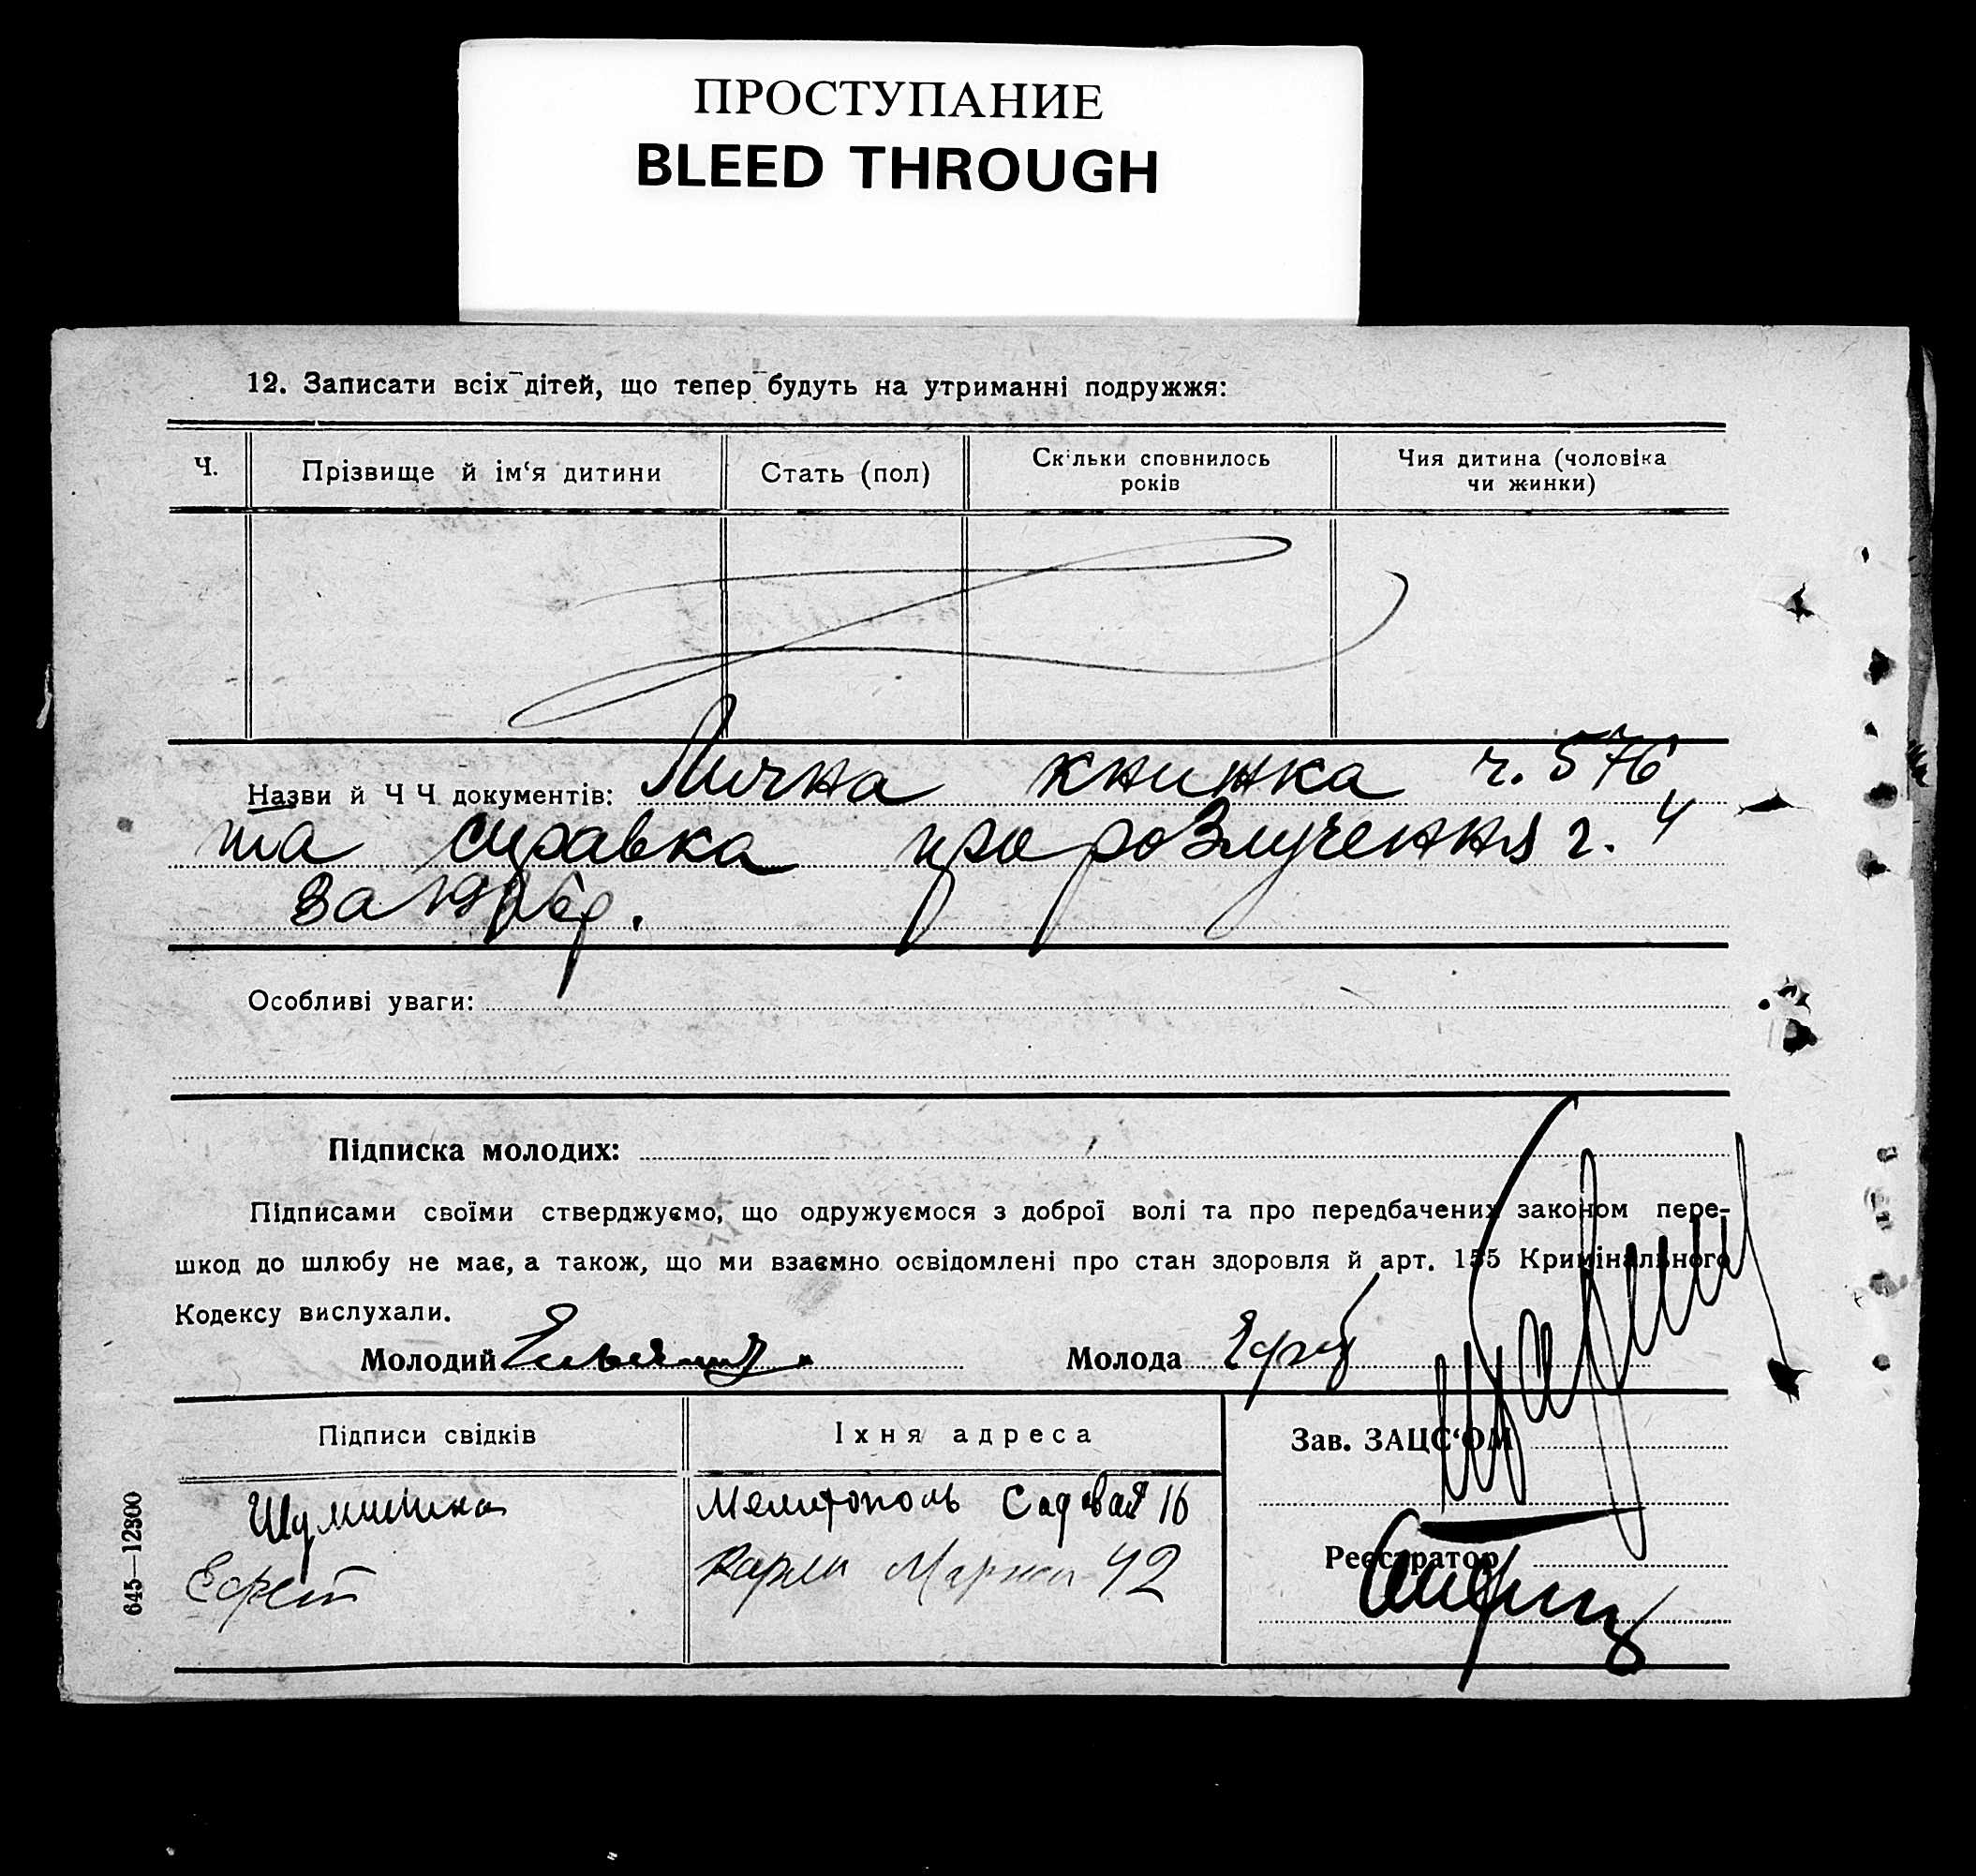 ПРОСТУПАНИЕ
BLEED THROUGH
12. Записати всіх дітей, що тепер будуть на утриманні подружжя:
Ч. Прізвище й ім‘я дитини Стать (пол) Скільки сповнилось років Чия дитина (чоловіка чи жинки)
Назви й Ч Ч документів: Лична книжка ч. 576
та справка про розлучення ч. 4
за
Особливі уваги:
Підписка молодих:
Підписами своїми стверджуємо, що одружуємося з доброї волі та про передбачених законом пере-
шкод до шлюбу не має, а також, що ми взаємно освідомлені про стан здоровля й арт. 155 Кримінального
Кодексу вислухали.
Молодий Молода
Підписи свідків Їхня адреса Зав. ЗАЦС‘ОМ
Мелитополь Садовая 16
Карла Маркса 42
Реєстратор
645—12300